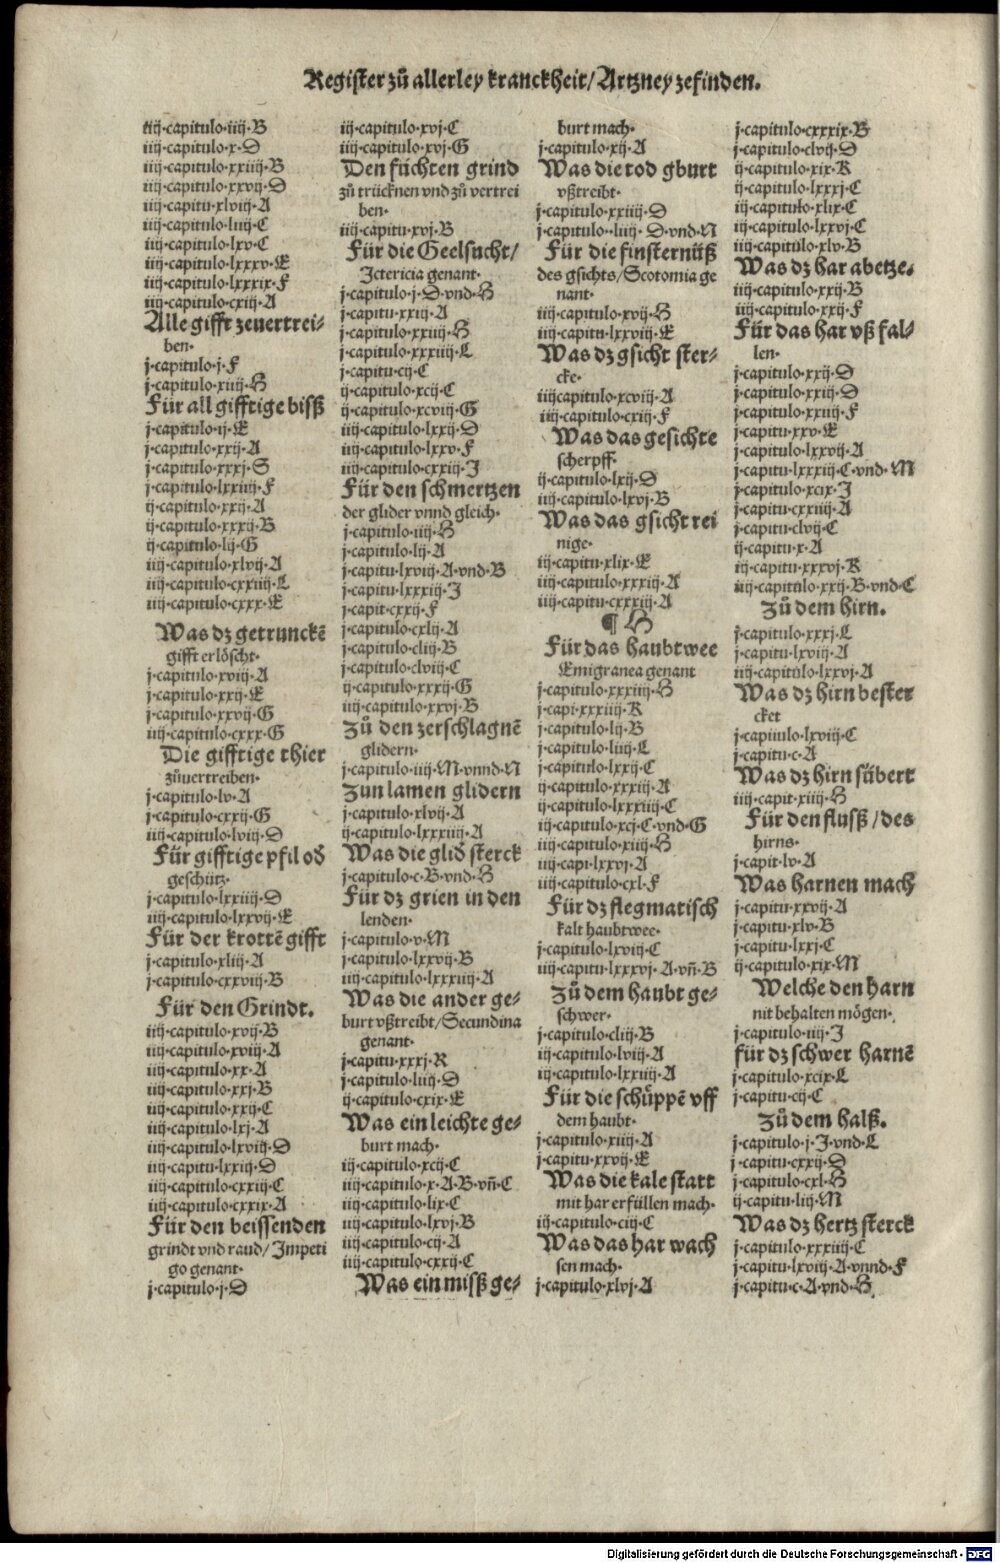 Register zů allerley kranckheit/Artzney zefinden.
iij·capitulo·iij·B
iij·capitulo·x·D
iij·capitulo·xxiij·B
iij·capitulo·xxvij·D
iij·capitu·xlviij·A
iij·capitulo·liij·C
iij·capitulo·lxv·C
iij·capitulo·lxxxv·E
iij·capitulo·lxxxix·F
iij·capitulo·cxiij·A
Alle gifft zeuertrei-
ben·
j·capitulo·j·F
j·capitulo·xiij·H
Für all gifftige bisß
j·capitulo·ij·E
j·capitulo·xxij·A
j·capitulo·xxxj·S
j·capitulo·lxxiij·F
ij·capitulo·xxij·A
ij·capitulo·xxxij·B
ij·capitulo·lij·G
iij·capitulo·xlvij·A
iij·capitulo·cxxiij·L
iij·capitulo·cxxx·E
Was dz getrunckē
gifft erlöscht·
j·capitulo·xviij·A
j·capitulo·xxij·E
j·capitulo·xxvij·G
iij·capitulo·cxxx·G
Die gifftige thier
zůuertreiben·
j·capitulo·lv·A
j·capitulo·cxxij·G
iij·capitulo·lviij·D
Für gifftige pfil od̄
geschütz·
j·capitulo·lxxiiij·D
iij·capitulo·lxxvij·E
Für der krottē gifft
j·capitulo·xliij·A
j·capitulo·cxxviij·B
Für den Grindt.
iij·capitulo·xvij·B
iij·capitulo·xviij·A
iij·capitulo·xx·A
iij·capitulo·xxj·B
iij·capitulo·xxij·C
iij·capitulo·lxj·A
iij·capitulo·lxviij·D
iij·capitu·lxxiij·D
iij·capitulo·cxxiij·C
iij·capitulo·cxxix·A
Für den beissenden
grindt vnd raud/Impeti
go genant·
j·capitulo·j·D
iij·capitulo·xvj·C
iij·capitulo·xvj·G
Den füchten grind
zů trücknen vnd zů vertrei
ben·
iij·capitu·xvj·B
Für die Geelsucht/
Jctericia genant·
j·capitulo·j·D·vnd·H
j·capitu·xxiij·A
j·capitulo·xxiij·H
j·capitulo·xxxiij·L
j·capitu·cij·C
ij·capitulo·xcij·C
ij·capitulo·xcviij·G
iij·capitulo·lxxij·D
iij·capitulo·lxxv·F
iij·capitulo·cxxiij·J
Für den schmertzen
der glider vnnd gleich·
j·capitulo·iij·H
j·capitulo·lij·A
j·capitu·lxviij·A·vnd·B
j·capitu·lxxxiij·J
j·capit·cxxij·F
j·capitulo·cxlij·A
j·capitulo·cliij·B
j·capitulo·clviij·C
ij·capitulo·xxxij·G
iij·capitulo·xxvj·B
Zů den zerschlagnē
glidern·
j·capitulo·iij·M·vnnd·N
Zun lamen glidern
j·capitulo·xlvij·A
ij·capitulo·lxxxiiij·A
Was die glid̄ sterck
j·capitulo·c·B·vnd·H
Für dz grien in den
lenden·
j·capitulo·v·M
j·capitulo·lxxvij·B
iij·capitulo·lxxxiiij·A
Was die ander ge-
burt vßtreibt/Secundina
genant·
j·capitu·xxxj·R
j·capitulo·liiij·D
ij·capitulo·cxix·E
Was ein leichte ge-
burt mach·
ij·capitulo·xcij·C
iij·capitulo·x·A·B·vn̄·C
iij·capitulo·lix·C
iij·capitulo·lxvj·B
iij·capitulo·cij·A
iij·capitulo·cxxij·C
Was ein misß ge-
burt mach·
j·capitulo·xij·A
Was die tod gburt
vßtreibt·
j·capitulo·xxiiij·D
j·capitulo··liiij· D·vnd·N
Für die finsternüß
des gsichts/Scotomia ge
nant·
iij·capitulo·xvij·H
iij·capitu·lxxviij·E
Was dz gsicht ster-
cke·
iij·capitulo·xcviij·A
iij·capitulo·cxij·F
Was das gesichte
scherpff·
ij·capitulo·lxij·D
iij·capitulo·lxvj·B
Was das gsicht rei
nige·
ij·capitu·xlix·E
iij·capitulo·xxxiij·A
iij·capitu·cxxxiij·A
¶ H
Für das haubtwee
Emigranea genant
j·capitulo·xxxiij·H
j·capi·xxxiij·K
j·capitulo·lij·B
j·capitulo·liiij·L
j·capitulo·lxxij·C
ij·capitulo·xxxiij·A
ij·capitulo·lxxxiij·C
ij·capitulo·xcj·C·vnd·G
iij·capitulo·xiij·H
iij·capi·lxxvj·A
iij·capitulo·cxl·F
Für dz flegmatisch
kalt haubtwee·
j·capitulo·lxviij·C
iij·capitu·lxxxvj·A·vn̄·B
Zů dem haubt ge-
schwer·
j·capitulo·cliij·B
ij·capitulo·lviij·A
ij·capitulo·lxxiij·A
Für die schüppē vff
dem haubt·
j·capitulo·xiiij·A
j·capitu·xxvij·E
Was die kale statt
mit har erfüllen mach·
ij·capitulo·ciij·C
Was das har wach
sen mach·
j·capitulo·xlvj·A
j·capitulo·cxxxix·B
j·capitulo·clvij·D
ij·capitulo·xix·K
ij·capitulo·lxxxj·C
iij·capitulo·xlix·C
iij·capitulo·lxxvj·C
iij·capitulo·xlv·B
Was dz har abetze.
iij·capitulo·xxij·B
iij·capitulo·xxij·F
Für das har vß fal-
len·
j·capitulo·xxij·D
j·capitulo·xxiij·D
j·capitulo·xxiiij·F
j·capitu·xxv·E
j·capitulo·lxxvij·A
j·capitu·lxxxiij·C·vnd·M
j·capitulo·xcix·J
j·capitu·cxxiij·A
j·capitu·clvij·C
ij·capitu·x·A
iij·capitu·xxxvj·K
iij·capitulo·xxij·B·vnd·C
Zů dem hirn.
j·capitulo·xxxj·L
j·capitu·lxviij·A
iij·capitulo·lxxvj·A
Was dz hirn bester
cket
j·capitulo·lxviij·C
j·capitu·c·A
Was dz hirn sübert
iij·capit·xiiij·H
Für den flusß/des
hirns·
j·capit·lv·A
Was harnen mach
j·capitu·xxvij·A
j·capitu·xlv·B
j·capitu·lxxj·C
ij·capitulo·xix·M
Welche den harn
nit behalten mögen·
j·capitulo·iiij·J
für dz schwer harnē
j·capitulo·xcix·L
j·capitu·cij·C
Zů dem halß.
j·capitulo·j·J·vnd·L
j·capitu·cxxij·D
j·capitulo·cxl·H
ij·capitu·liij·M
Was dz hertz sterck
j·capitulo·xxxiij·C
j·capitu·lxviij·A·vnnd·F
j·capitu·c·A·vnd·H
Digitalisierung gefördert durch die Deutsche Forschungsgemeinschaft - DFG